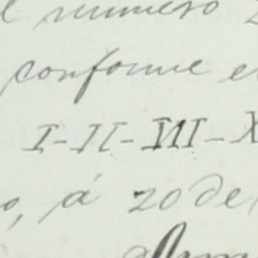 numero 2
conforme e
I-II-VII-X
o, á 20 de